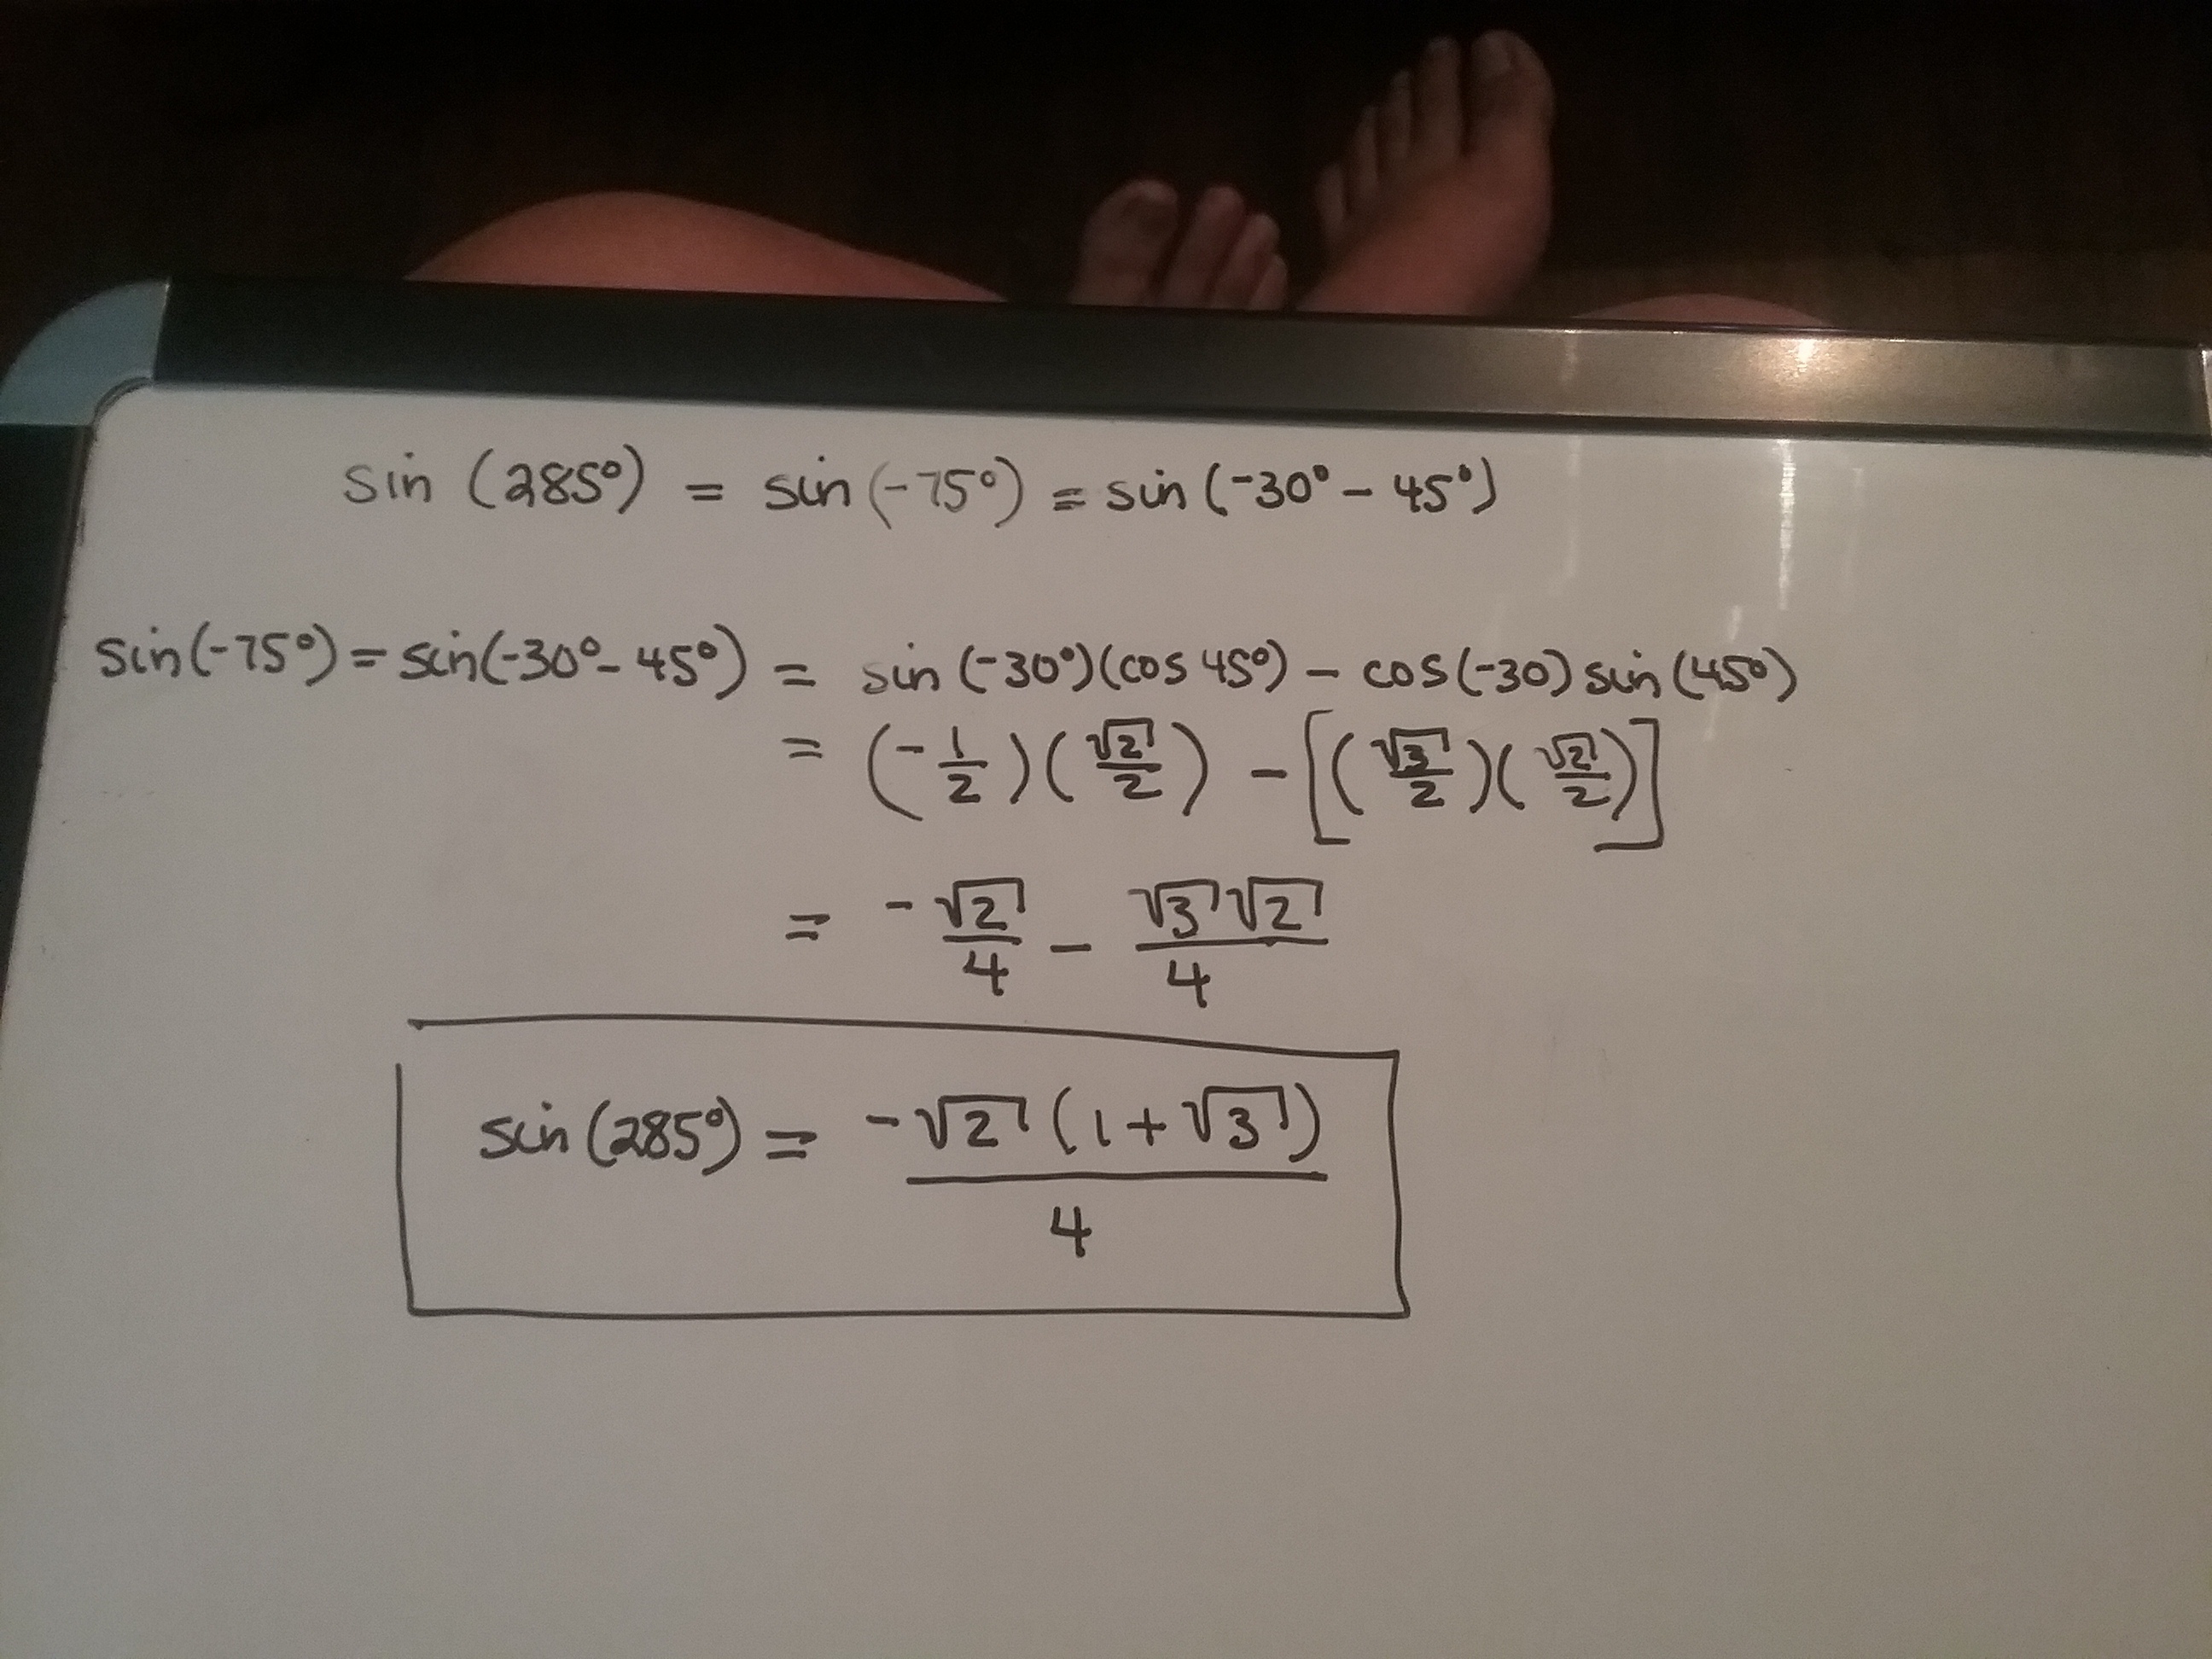 sin (285°) = sin(-75°) = sin(-30° - 45°)
sin(-75°) = sin(-30° - 45°) = sin(-30°)(cos 45°) - cos(-30) sin(45°)
= (-1/2)(√2/2) - [(√3/2)(√2/2)]
= -√2/4 - √3√2/4
sin(285°) = -√2(1+√3)/4